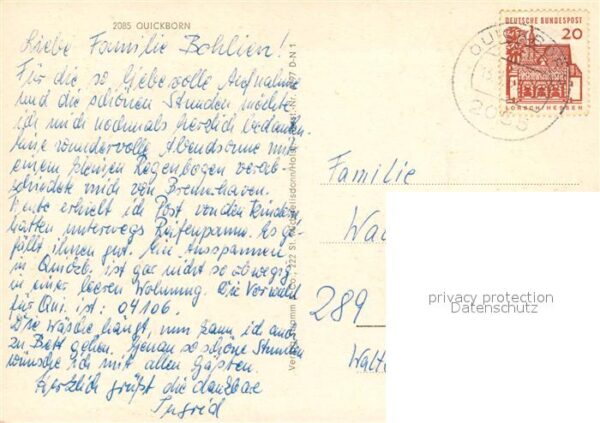 2085 QUICKBORN
Liebe Familie Bohlien!
Für die so liebevolle Aufnahme
und die schönen Stunden möchte
ich mich nochmals herzlich bedanken.
Eine wundervolle Abendsonne mit
einem kleinen Regenbogen verab-
schiedete mich von Bremerhaven.
Heute erhielt ich Post von den Kindern,
hatten unterwegs Reifenpanne. Es ge-
fällt ihnen gut. Ein Ausspannen
in Quickb. ist gar nicht so abwegig
in einer leeren Wohnung. Die Vorwahl
für Qui. ist: 04106.
Die Wäsche hängt, nun kann ich auch
zu Bett gehen. Genau so schöne Stunden
wünsche ich mit allen Gästen.
Herzlich grüßt die dankbare
Ingrid
DEUTSCHE BUNDESPOST
20
LORSCH/HESSEN
2085
Familie
289
Walte
privacy protection
Datenschutz